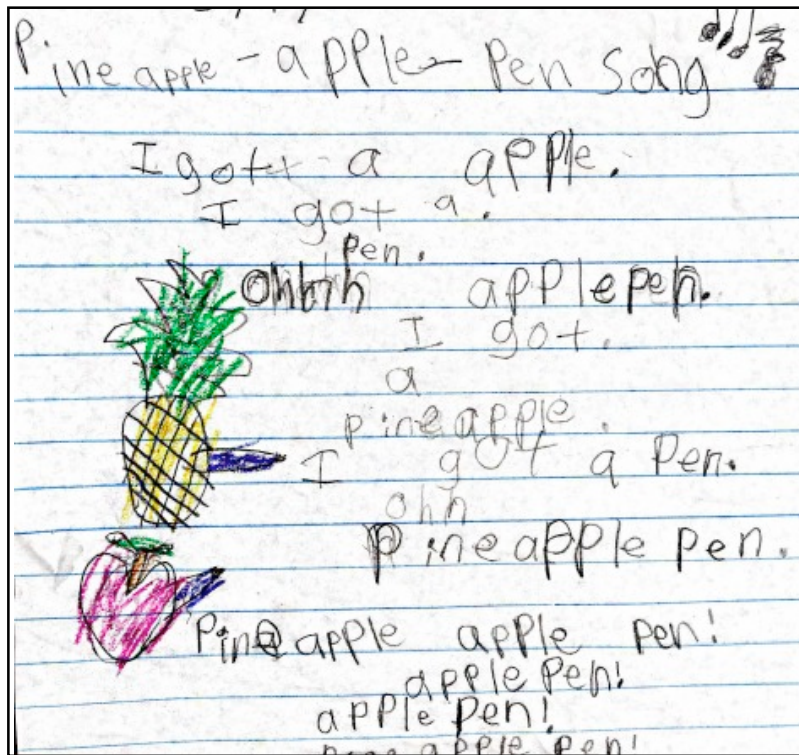 Pineapple - apple - Pen Song
I gott a apple.
I got a.
Pen.
Ohhhh applepen.
I got.
a
pineapple.
I got a Pen.
ohh
Pineapple pen.
Pineapple apple pen!
apple Pen!
apple Pen!
apple pen!